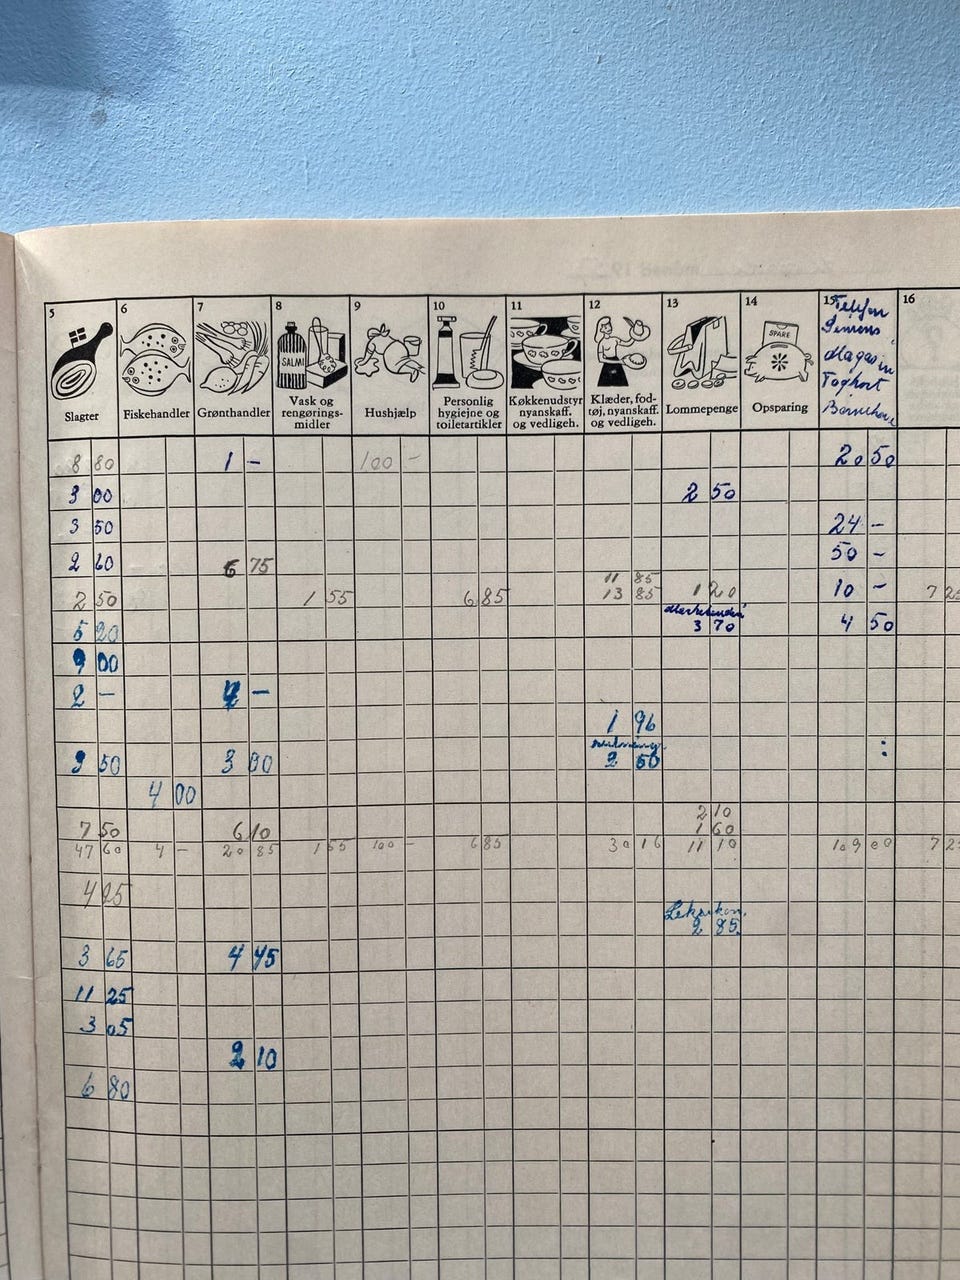 5 6 7 8 9 10 11 12 13 14 15 16
SALMI
SPARE
Slagter
Fiskehandler
Grønthandler
Vask og
rengørings-
midler
Hushjælp
Personlig
hygiejne og
toiletartikler
Køkkenudstyr
nyanskaff.
og vedligeh.
Klæder, fod-
tøj, nyanskaff.
og vedligeh.
Lommepenge
Opsparing
Telefon
Magasin
8 80 1 - 100 - 20 50
3 00 2 50
3 50 24 -
2 60 6 75 50 -
11 85
2 50 1 55 6 85 13 85 1 20 10 - 7 25
5 20 3 70 4 50
9 00
2 - -
1 96
9 50 3 00 2 50
4 00
2 10
7 50 6 10 1 60
47 60 4 - 20 85 1 55 100 - 6 85 30 16 11 10 109 00 7 25
4 25
Leksikon
2 85
3 65 4 45
11 25
3 05
2 10
6 80